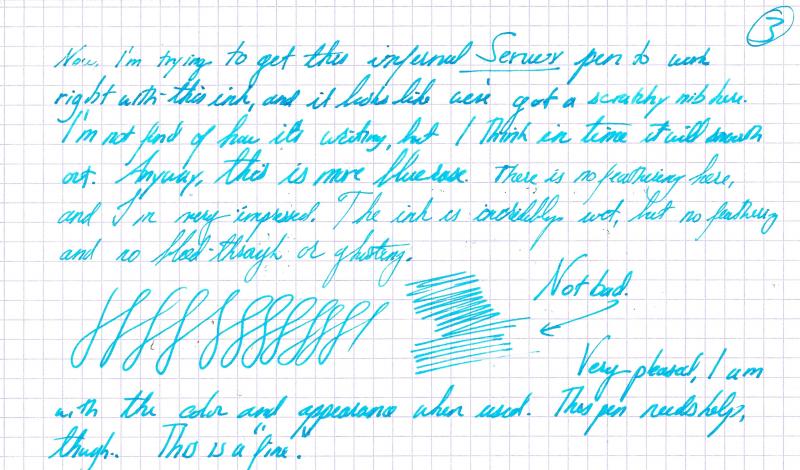 3
Now, I'm trying to get this infernal Servex pen to work
right with this ink, and it looks like we've got a scratchy nib here.
I'm not fond of how it's writing, but I think in time it will smooth
out. Anyway, this is more blue rose. There is no feathering here,
and I'm very impressed. The ink is incredibly wet, but no feathering
and no bleed-through or ghosting.
Not bad.
Very pleased, I am
with the color and appearance when used. This pen needs help,
though. This is a "fine."